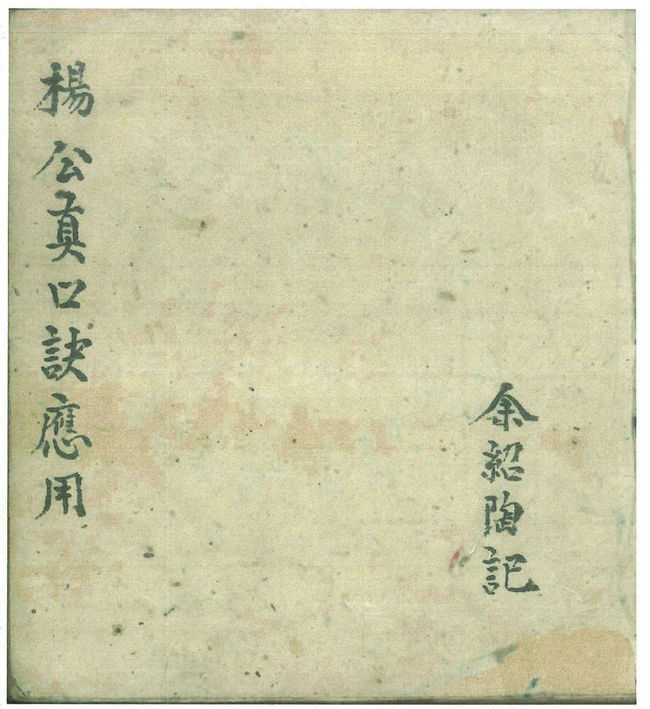 楊公真口訣應用
余紹陶記